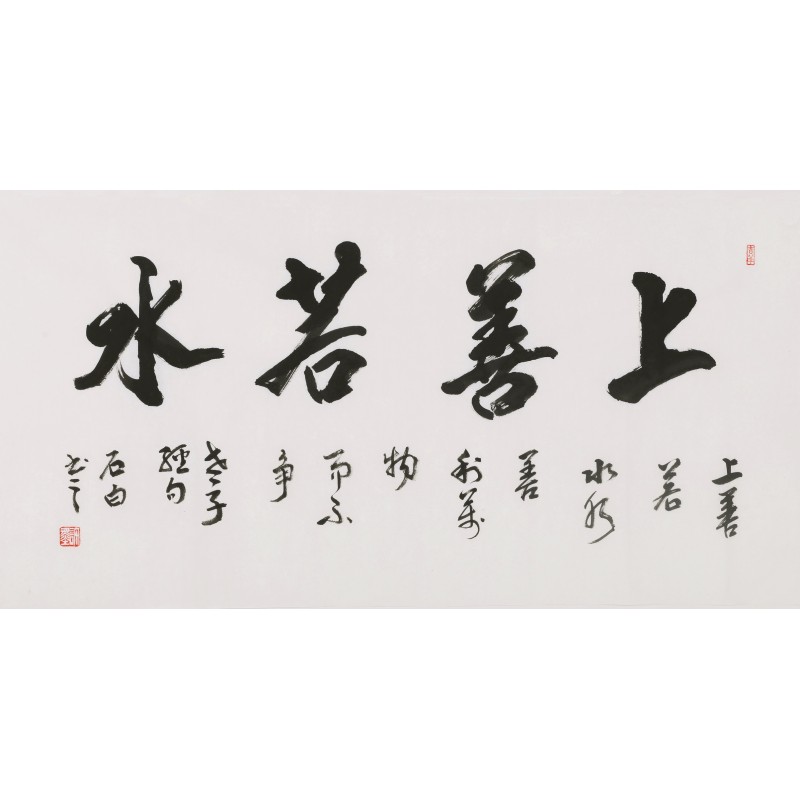 上善若水
上善
若
水水
善
利萬
物
而不
争
老子
經句
石白
书之